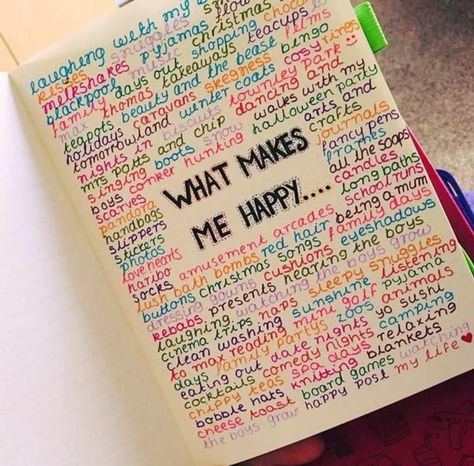 laughing with my
kisses snuggles
milkshakes music christmas
blackpool pyjamas shopping
family days out takeaways teacups rings
max thomas beauty and the beast bingo films
teapots caravans skegness cosy
holidays winter coats townley park
tomorrowland biscuits dancing and
nights in snow walks with my
mrs potts and chip halloween party
singing boots arts and
boys conker hunting crafts
scarves journals
pandora WHAT MAKES fancy pens
handbags frames
slippers ME HAPPY.... all the soaps
stickers candles
photos long baths
love hearts amusement arcades school runs
haribo red hair being a mum
socks family days
lush bath bombs songs eyeshadows
buttons christmas cushions hearing the boys
dressing gowns presents watching the boys grow
kebabs naps sleepy snuggles
laughing sunshine listening
cinema trips mini golf pyjama
clean washing zoos animals
to max reading date nights yo sushi
days family partys camping
eating out comedy nights relaxing
cocktails spa days blankets
chippy teas knitting watching
bobble hats board games my life
cheese toast happy post
the boys grow